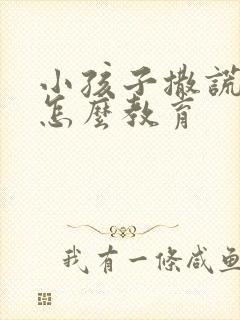 小孩子撒謊
怎麼教育
我有一條咸鱼